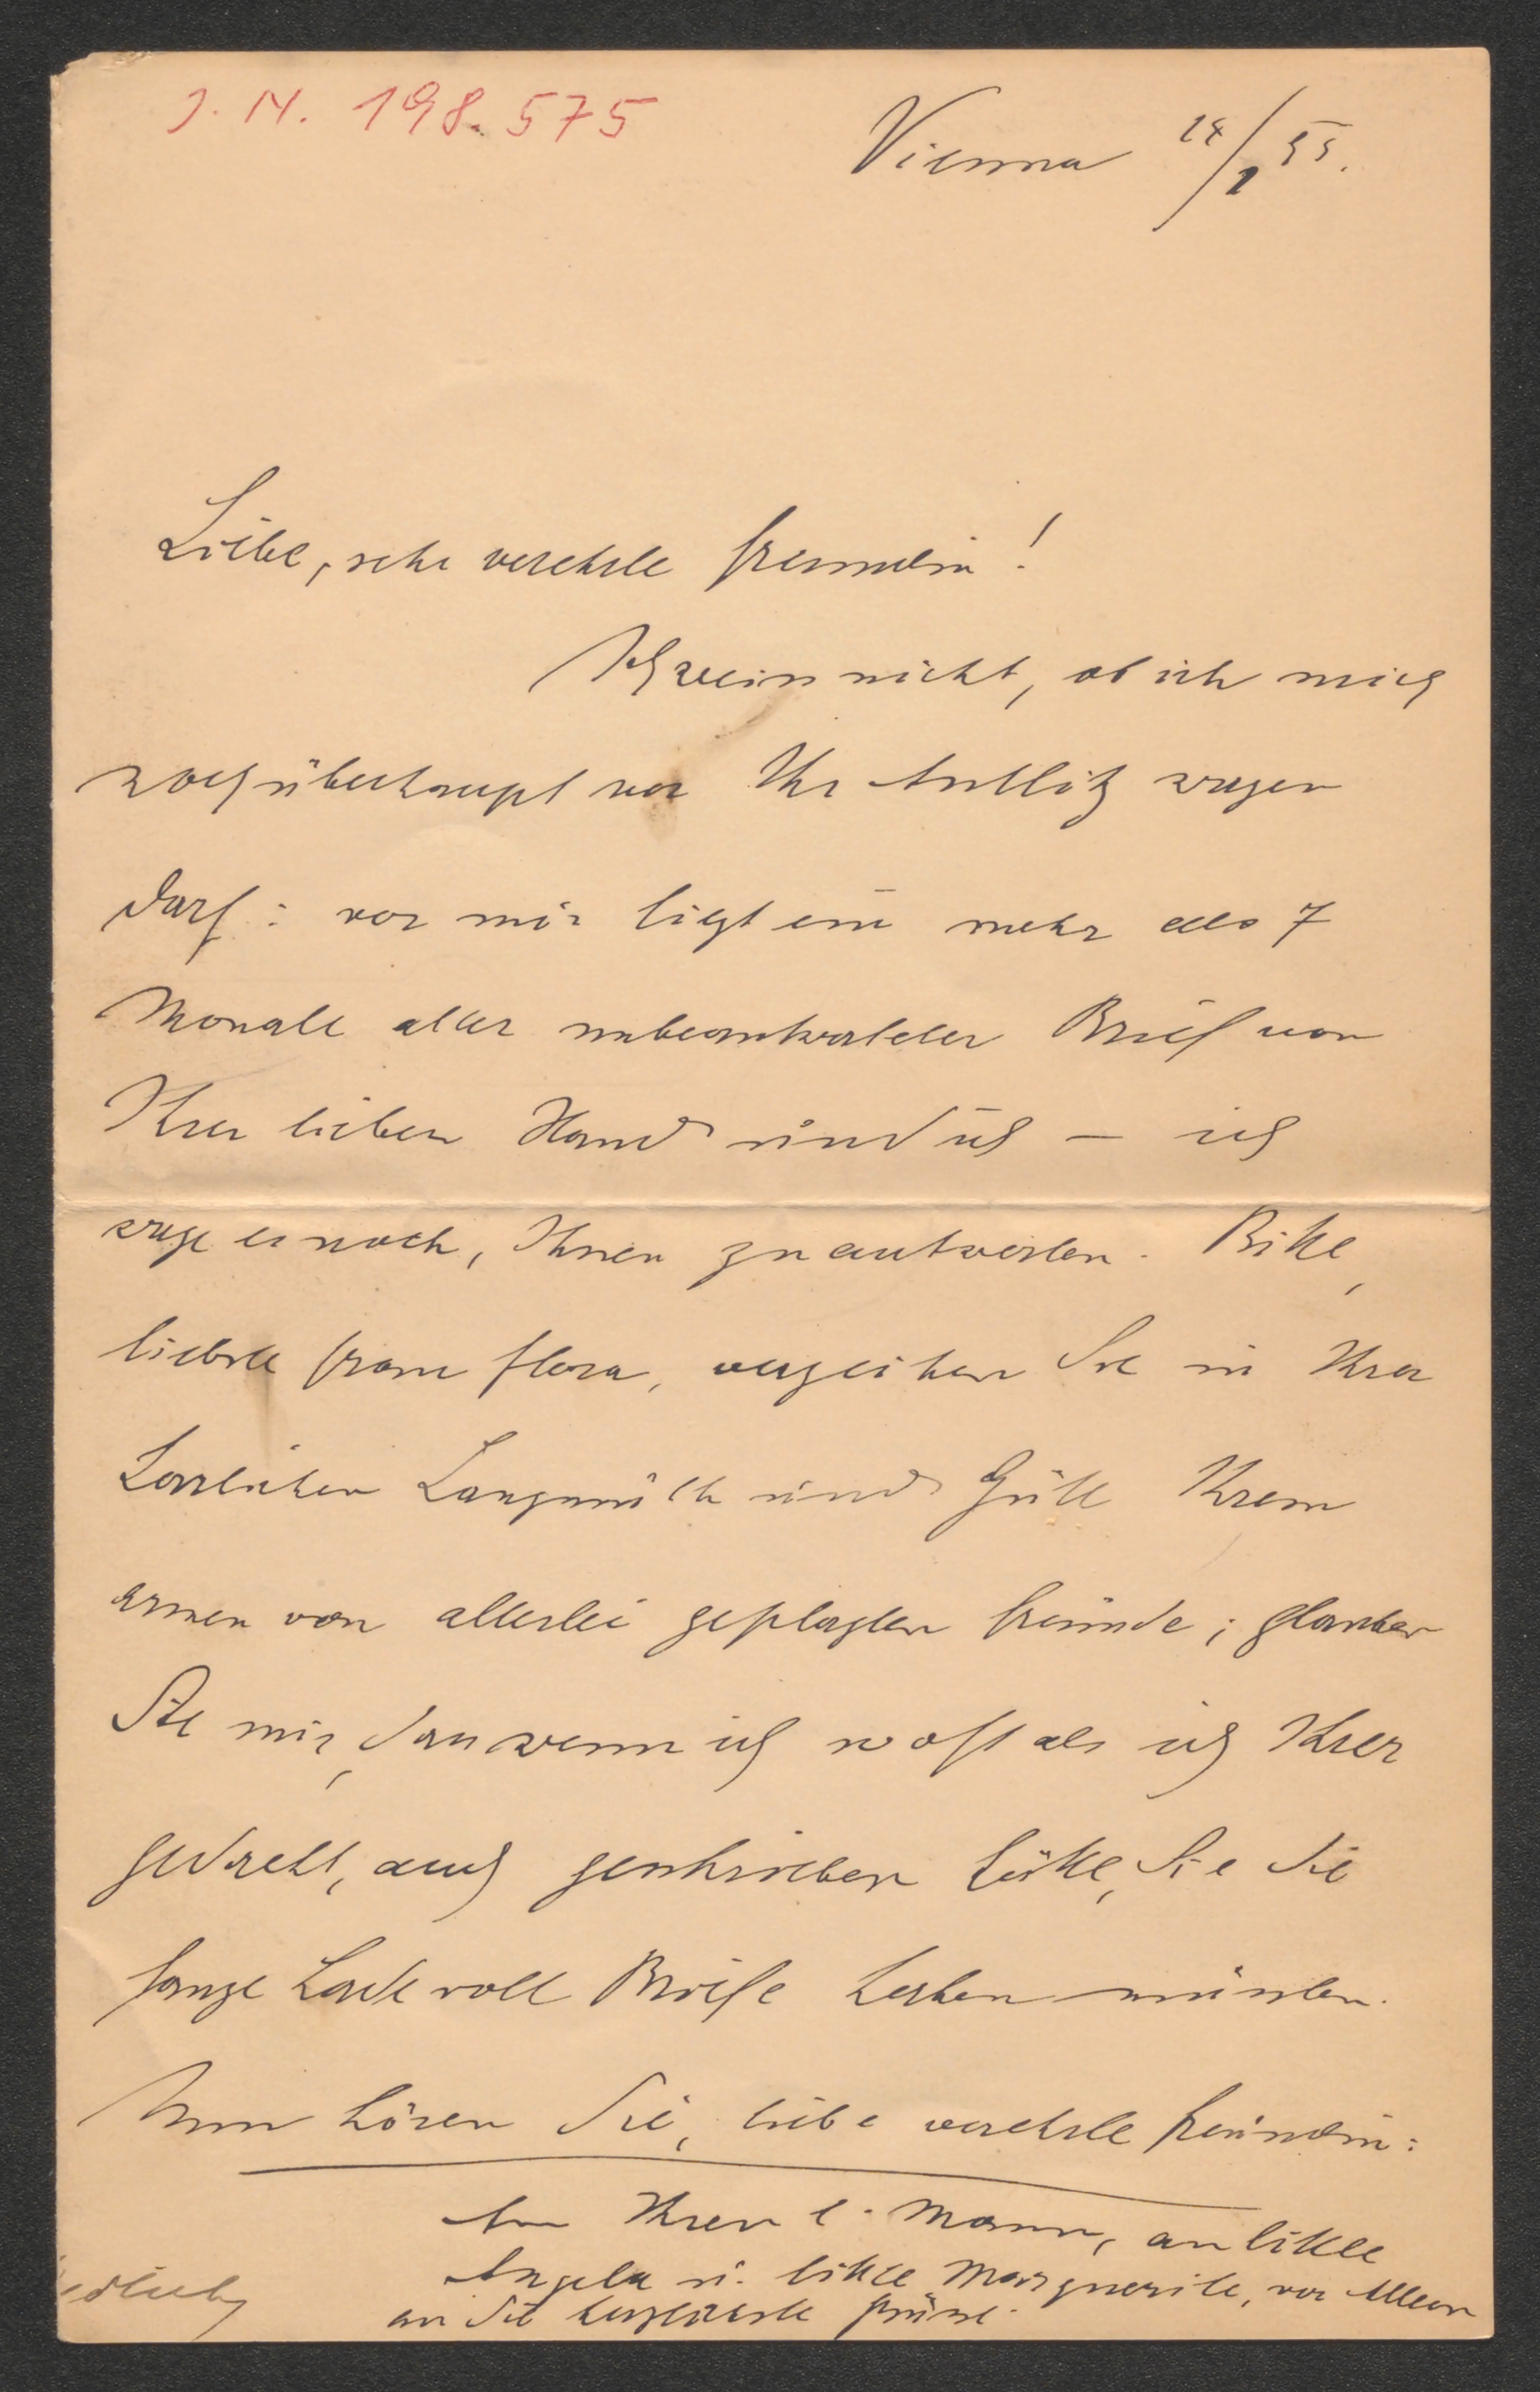 J. N. 198.575
Vienna 24/1 95.
Liebe, sehr verehrte Freundin!
Ich weiss nicht, ob ich mich
noch überhaupt vor Ihr Antlitz wagen
darf: vor mir liegt ein mehr als 7
Monate alter unbeantworteter Brief von
Ihrer lieben Hand und ich – ich
wage es noch, Ihnen zu antworten. Bitte,
liebste Frau Flora, verzeihen Sie in Ihrer
Langmuth und Güte Ihrem
armen von allerlei geplagten Freunde; glauben
Sie mir, dass wenn ich so oft als ich Ihrer
gedacht, auch geschrieben hätte, Sie die
ganze Lade voll Briefe haben müssten.
Nun hören Sie, liebe verehrte Freundin:
An Ihren l. Mann, an little
Angela u. little Marguerite, vor Allem
an Sie herzlichste Grüsse.